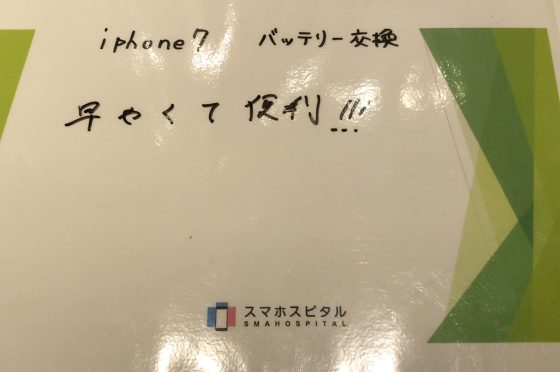 iphone7 バッテリー交換
早やくて便利!!!
スマホスピタル
SMAHOSPITAL